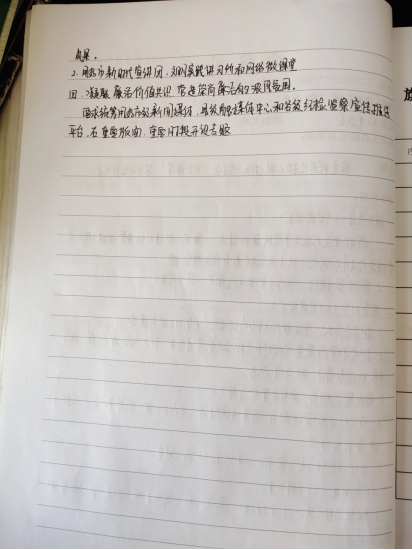 效果。
2. 用好市新时代宣讲团、刘胡实践讲习所和网络微课堂
四、凝聚廉洁价值共识,营造崇尚廉洁的浓厚氛围。
要求统筹用好市级新闻媒体、县级融媒体中心和各级纪检监察宣传推送
平台,在重要版面、重要时段开设专题